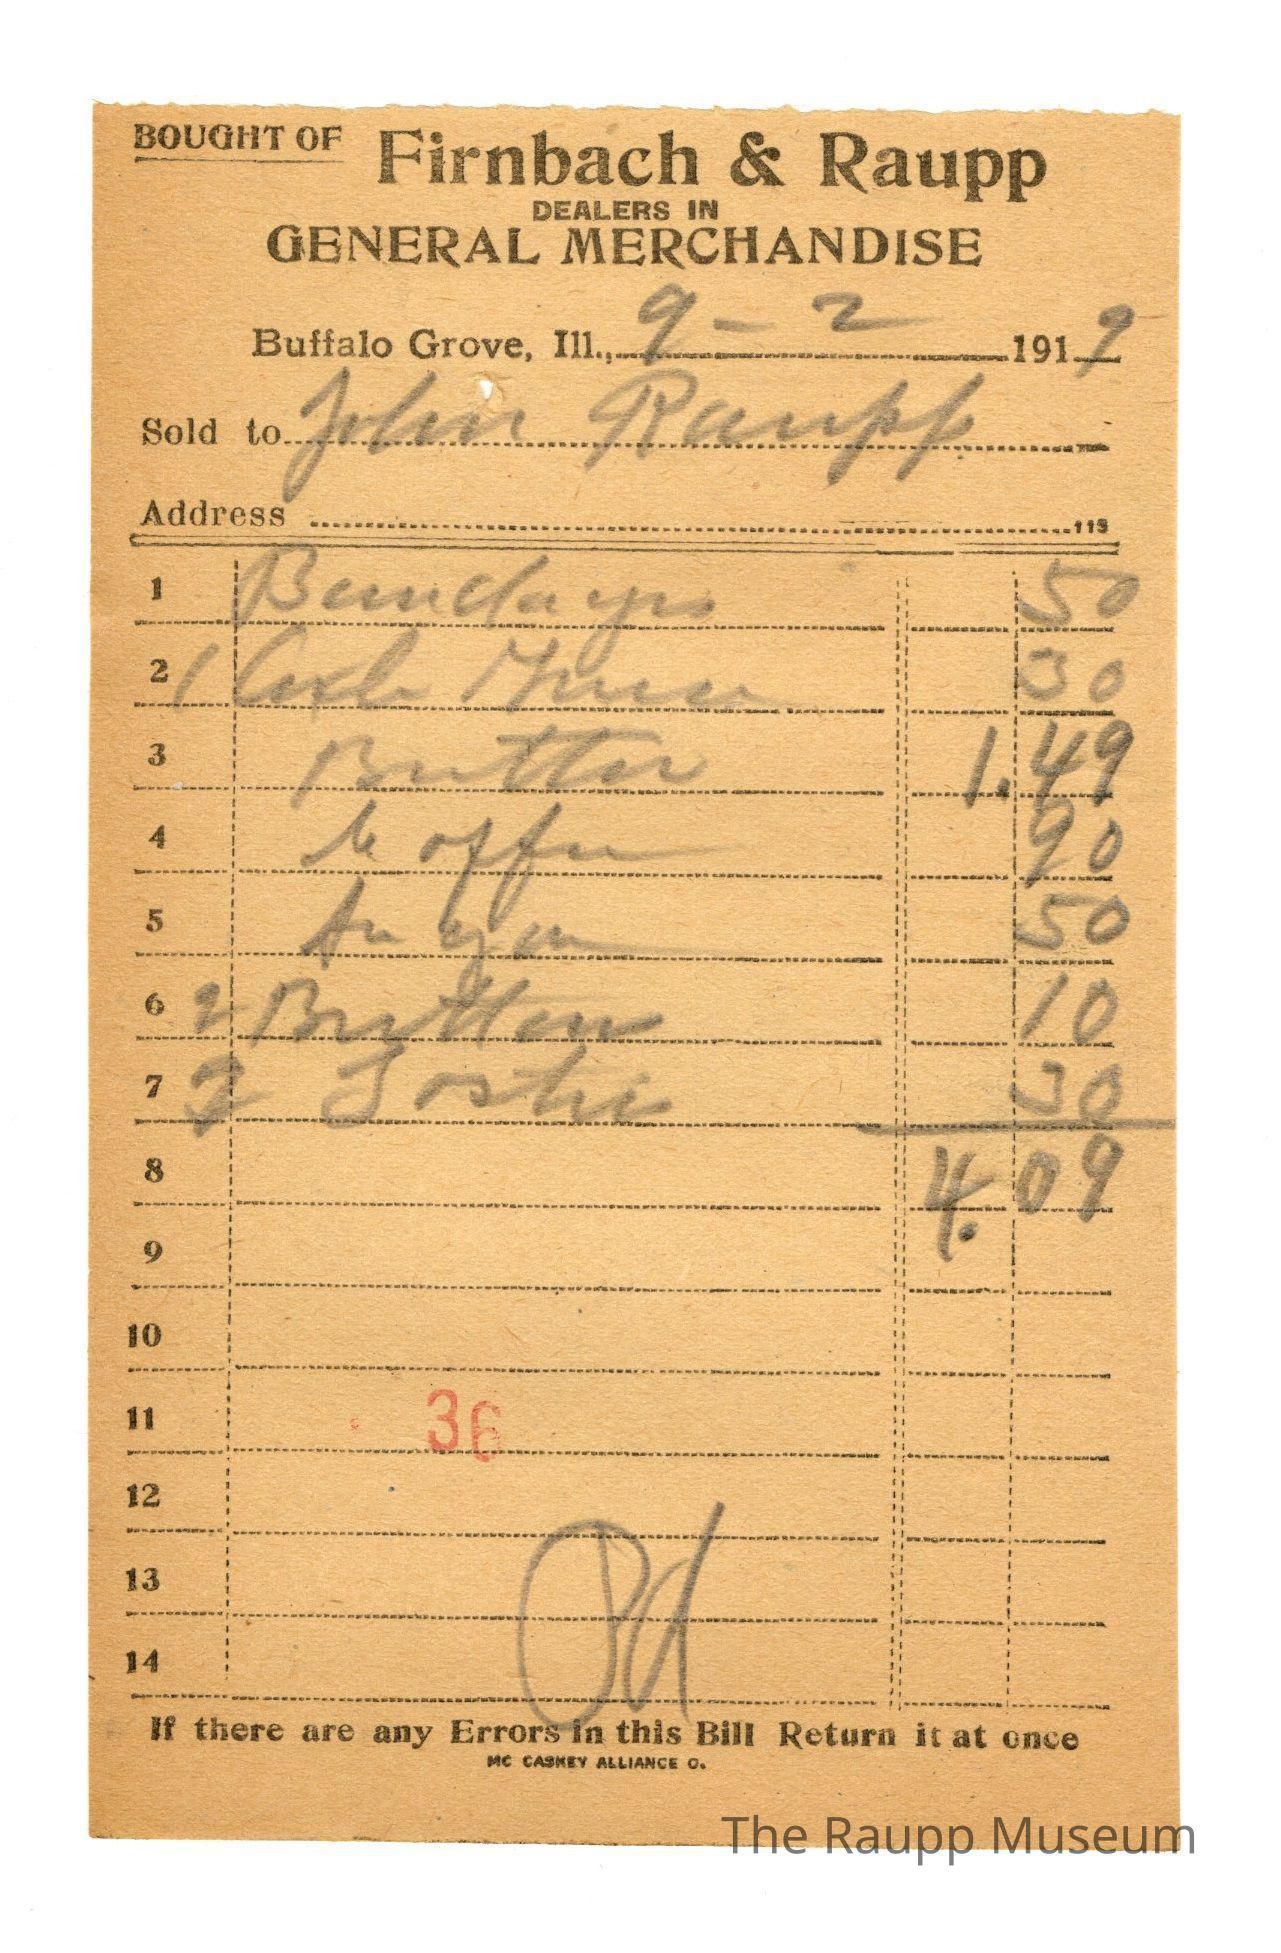 BOUGHT OF Firnbach & Raupp
DEALERS IN
GENERAL MERCHANDISE
Buffalo Grove, Ill., 9-2 1919
Sold to John Raupp
Address 113
1 50
2 1 30
3 Butter 1.49
4 90
5 50
6 2 Button 10
7 2 30
8 4.09
9
10
11 36
12
13 Pd
14
If there are any Errors in this Bill Return it at once
MC CASKEY ALLIANCE O.
The Raupp Museum